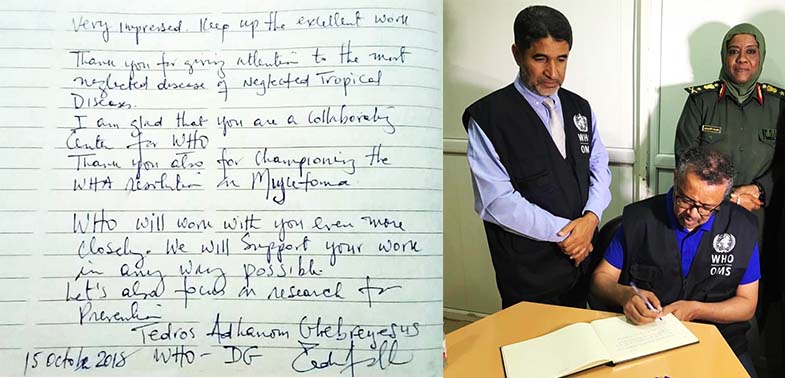 Very impressed. Keep up the excellent work
Thank you for giving attention to the most
neglected disease of Neglected Tropical
Diseases.
I am glad that you are a collaborating
Center for WHO
Thank you also for championing the
WHA resolution on Mycetoma
WHO will work with you even more
closely. We will support your work
in any way possible
Let's also focus on research for
Prevention
Tedros Adhanom Ghebreyesus
15 October 2018 WHO - DG
WHO
OMS
WHO
OMS